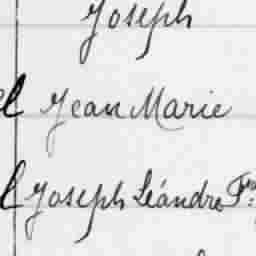 Joseph
l Jean Marie
l Joseph Léandre Fr